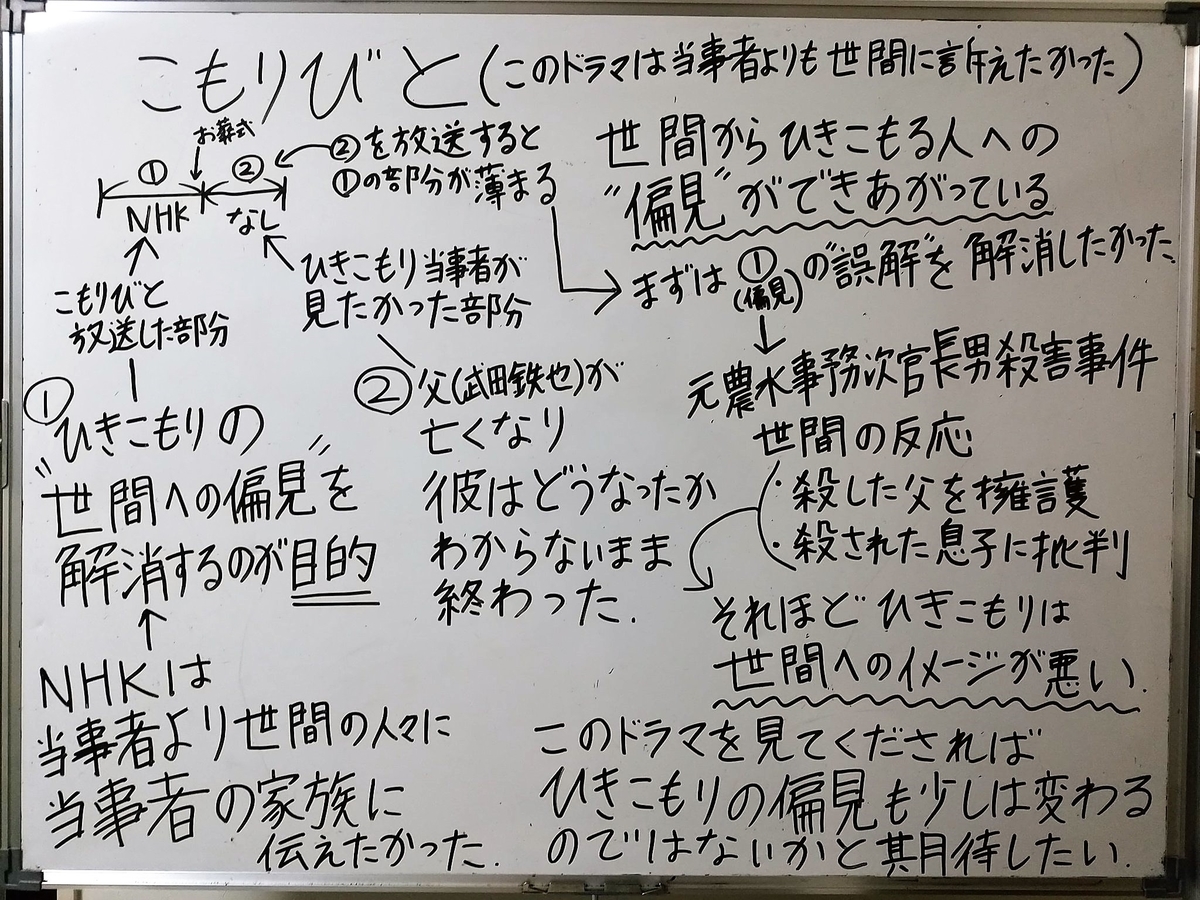 こもりびと(このドラマは当事者よりも世間に訴えたかった)
お葬式
① ②
NHK なし
②を放送すると
①の部分が薄まる
こもりびと
放送した部分
ひきこもり当事者が
見たかった部分
①
ひきこもりの
"世間への偏見"を
解消するのが目的
NHKは
当事者より世間の人々に
当事者の家族に
伝えたかった.
②父(武田鉄也)が
亡くなり
彼はどうなったか
わからないまま
終わった.
世間からひきこもる人への
"偏見"ができあがっている
まずは①の"誤解"を解消したかった.
(偏見)
元農水事務次官長男殺害事件
世間の反応
・殺した父を擁護
・殺された息子に批判
それほどひきこもりは
世間へのイメージが悪い.
このドラマを見てくだされば
ひきこもりの偏見も少しは変わる
のではないかと期待したい.